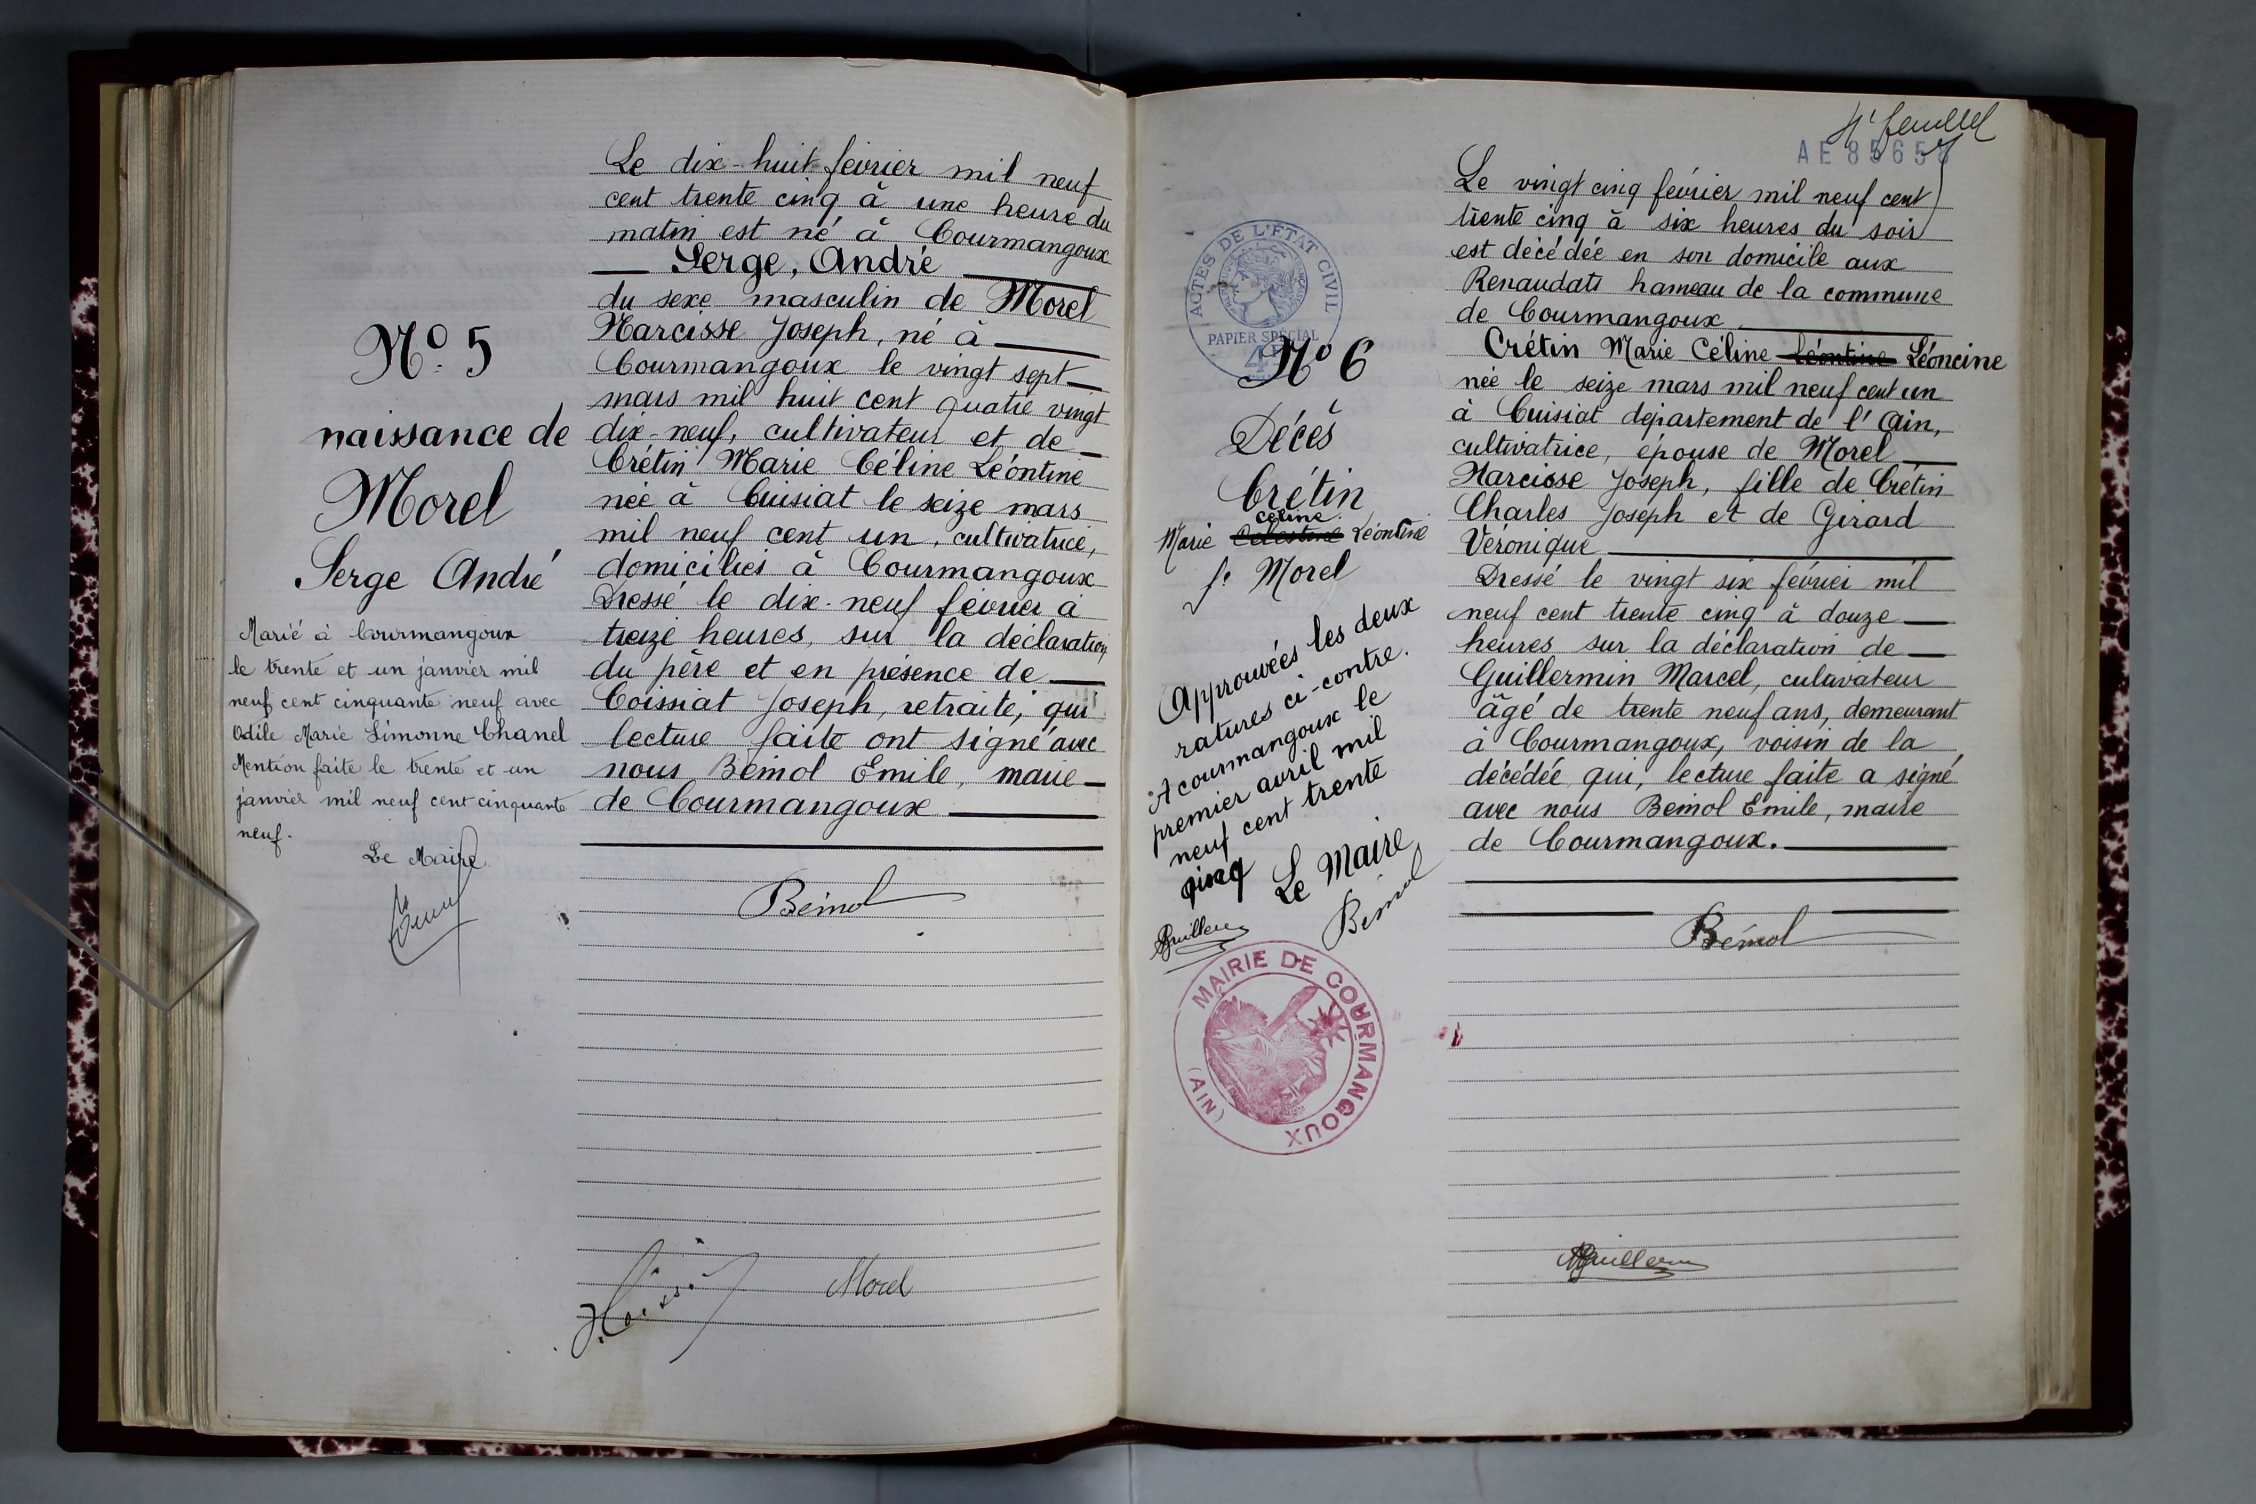 Le dix-huit février mil neuf
cent trente cinq à une heure du
matin est né à Courmangoux
Serge, André
du sexe masculin de Morel
Narcisse Joseph, né à
Courmangoux le vingt sept
mars mil huit cent quatre vingt
dix-neuf, cultivateur et de
Crétin Marie Céline Léontine
née à Cuisiat le seize mars
mil neuf cent un, cultivatrice,
domiciliés à Courmangoux
Dressé le dix-neuf février à
treize heures, sur la déclaration
du père et en présence de
Coissiat Joseph, retraité, qui
lecture faite ont signé avec
nous Bémol Emile, maire
de Courmangoux
Nº 5
naissance de
Morel
Serge André
Marié à Courmangoux
le trente et un janvier mil
neuf cent cinquante neuf avec
Odile Marie Simonne Chanel
Mention faite le trente et un
janvier mil neuf cent cinquante
neuf.
Le Maire
Bémol
Morel
4e feuillet
AE 85658
ACTES DE L'ÉTAT CIVIL
PAPIER SPÉCIAL
Nº 6
Décès
Crétin
Céline
Marie Célestine Léontine
fe Morel
Approuvées les deux
ratures ci-contre.
A courmangoux le
premier avril mil
neuf cent trente
cinq Le Maire
Bémol
Guillermin
MAIRIE DE COURMANGOUX
(AIN)
Le vingt cinq février mil neuf cent
trente cinq à six heures du soir
est décédée en son domicile aux
Renaudats hameau de la commune
de Courmangoux
Crétin Marie Céline Léontine Léoncine
née le seize mars mil neuf cent un
à Cuisiat département de l'Ain,
cultivatrice, épouse de Morel
Narcisse Joseph, fille de Crétin
Charles Joseph et de Girard
Véronique
Dressé le vingt six février mil
neuf cent trente cinq à douze
heures sur la déclaration de
Guillermin Marcel, culavateur
âgé de trente neuf ans, demeurant
à Courmangoux, voisin de la
décédée qui, lecture faite a signé
avec nous Bémol Emile, maire
de Courmangoux.
Bémol
Guillermin